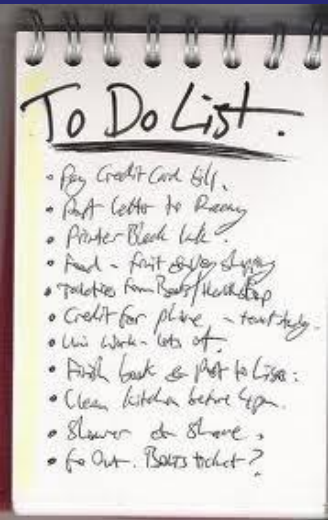 To Do List.
• Pay Credit Card bill.
• Post letter to
• Printer Black Ink.
• Food - fruit & veg shopping
• Toiletries from Boots/
• Credit for phone -
• Uni work - lots of.
• Finish book & post to Lisa.
• Clean kitchen before 4pm.
• Shower & Shave.
• Go Out. ticket?